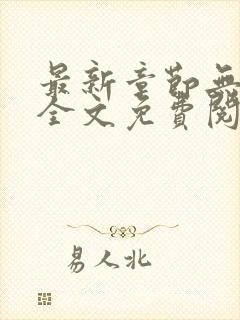 最新章節無
全文免費閱
易人北